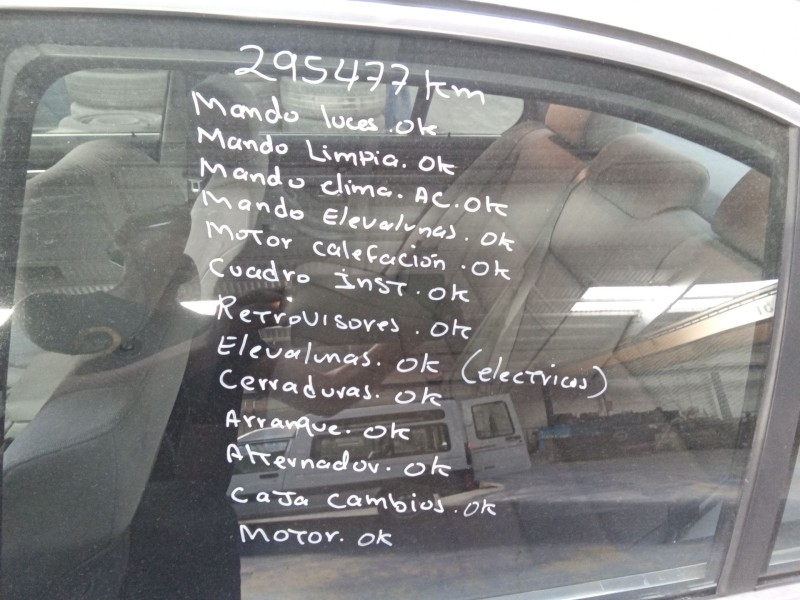 295477 km
Mando luces. ok
Mando Limpia. ok
Mando clima. AC. ok
Mando Elevalunas. ok
Motor calefación. ok
Cuadro inst. ok
Retrovisores. ok
Elevalunas. ok (electricos)
Cerraduras. ok
Arranque. ok
Alternador. ok
Caja cambios. ok
Motor. ok